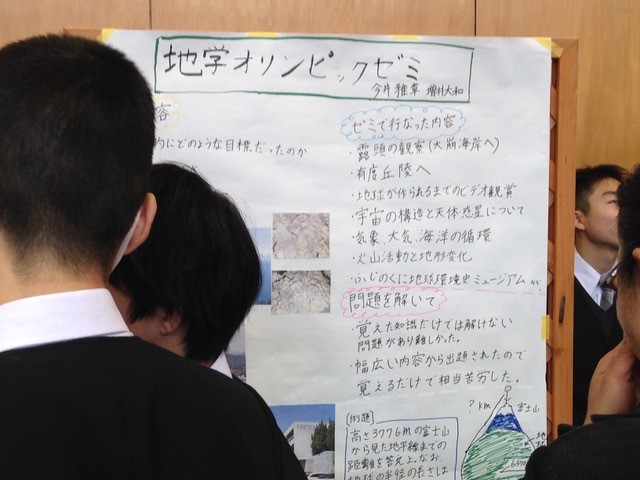 地学オリンピックゼミ
今井雅章 増井大和
容
的にどのような目標だったのか
ゼミで行なった内容
・露頭の観察(大崩海岸へ)
・有度丘陵へ
・地球が作られるまでのビデオ観賞
・宇宙の構造と天体惑星について
・気象、大気、海洋の循環
・火山活動と地形変化
・ふじのくに地球環境史ミュージアム
問題を解いて
・覚えた知識だけでは解けない
問題があり難しかった。
・幅広い内容から出題されたので
覚えるだけで相当苦労した。
[例題]
高さ3776mの富士山
から見た地平線までの
距離を答えよ。なお
地球の半径の長さは
? km
富士山